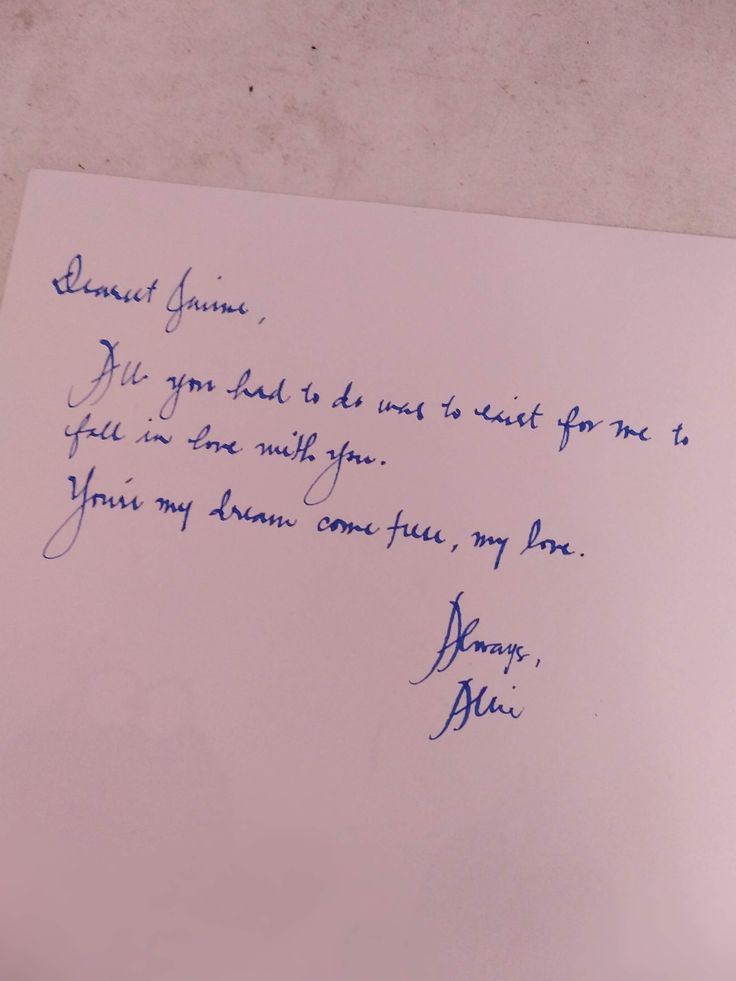 Dearest Jaime,
All you had to do was to exist for me to
fall in love with you.
You're my dream come true, my love.
Always,
Allie